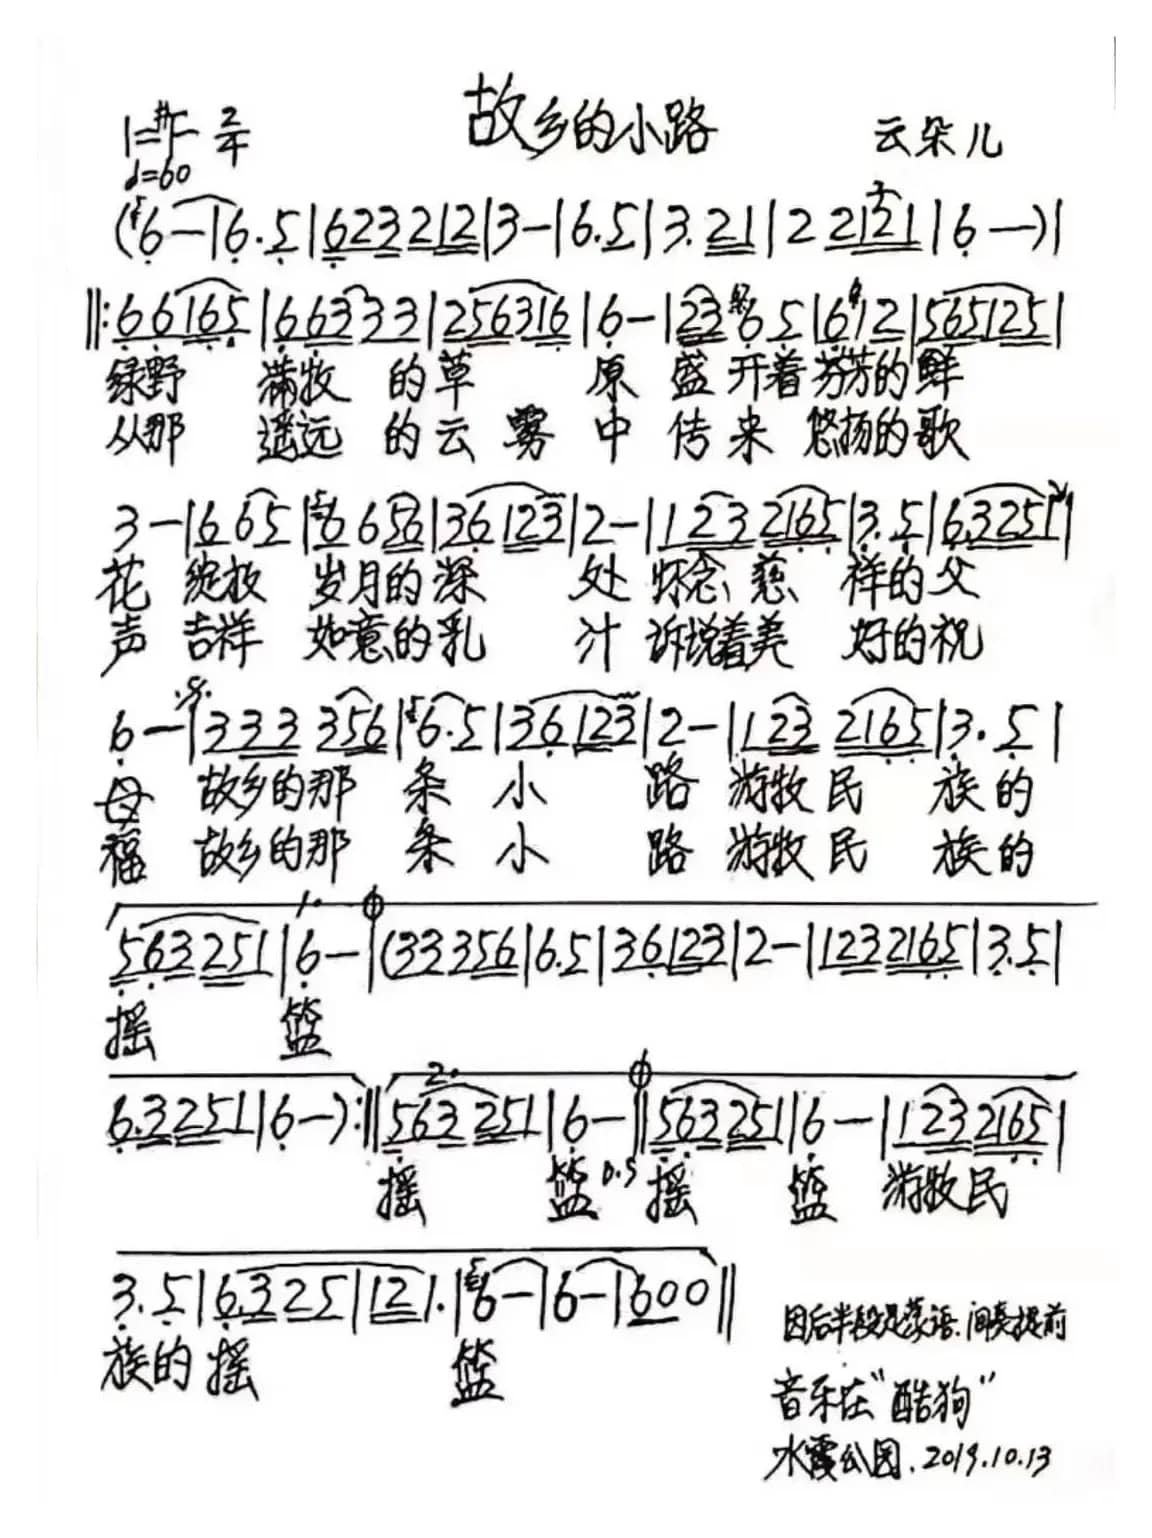 故乡的小路
1=#F 2/4
云朵儿
♩=60
(6—|6.5|623212|3—|6.5|3.21|22121|6—)|
‖:66165|663333|256316|6—|2365|612|565125|
绿野 满牧 的草 原 盛开着芬芳的鲜
从那 遥远 的云雾中 传来 悠扬的歌
3—|665|6656|36123|2—|1232165|3.5|6.325|
花 绽放 岁月的深 处 怀念慈 祥的父
声 吉祥 如意的乳 汁 诉说着美 好的祝
6—|333356|6.5|36123|2—|1232165|3.5|
母 故乡的那 条 小 路 游牧民 族的
福 故乡的那 条 小 路 游牧民 族的
1.
563251|6—|(33356|6.5|36123|2—|1232165|3.5|
摇 篮
2.
6.3251|6—):‖563251|6—‖563251|6—|1232165|
摇 篮 D.S 摇 篮 游牧民
3.5|6.325|121.|6—|6—|600‖
族的摇 篮
因后半段是蒙语.间奏提前
音乐在“酷狗”
水霞公园.2019.10.13